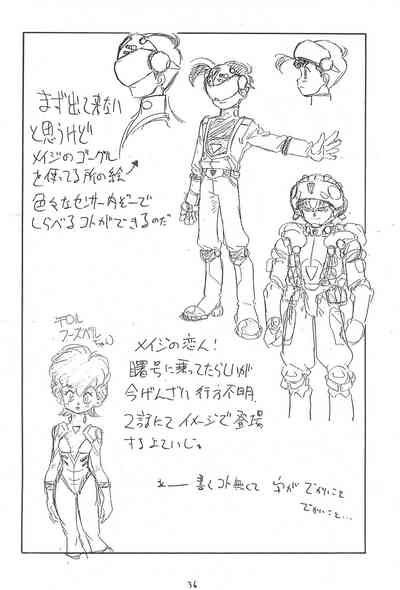 まず出て来ない
と思うけど
メイジのゴーグル
を使ってる所の絵
色々なセンサー内ぞーで
しらべるコトができるのだ
チロル
フーズベル
ちゃん
メイジの恋人!
曙号に乗ってたらしいが
今げんざい行方不明.
2話にてイメージで登場
するよていじゃ。
書くコト無くて 字が でかいこと
でかいこと…
36